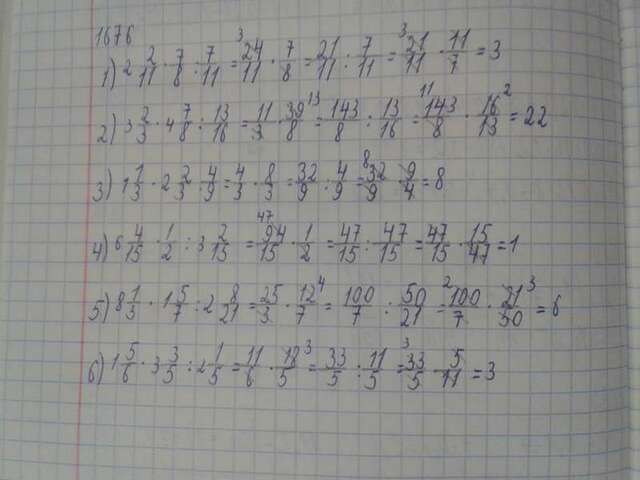 1676
1) 2 2/11 · 7/8 : 7/11 = 24/11 · 7/8 = 21/11 : 7/11 = 21/11 · 11/7 = 3
2) 3 2/3 · 4 7/8 : 13/16 = 11/3 · 39/8 = 143/8 : 13/16 = 143/8 · 16/13 = 22
3) 1 1/3 · 2 2/3 : 4/9 = 4/3 · 8/3 = 32/9 : 4/9 = 32/9 · 9/4 = 8
4) 6 4/15 · 1/2 : 3 2/15 = 94/15 · 1/2 = 47/15 : 47/15 = 47/15 · 15/47 = 1
5) 8 1/3 · 1 5/7 : 2 8/21 = 25/3 · 12/7 = 100/7 : 50/21 = 100/7 · 21/50 = 6
6) 1 5/6 · 3 3/5 : 2 1/5 = 11/6 · 18/5 = 33/5 : 11/5 = 33/5 · 5/11 = 3